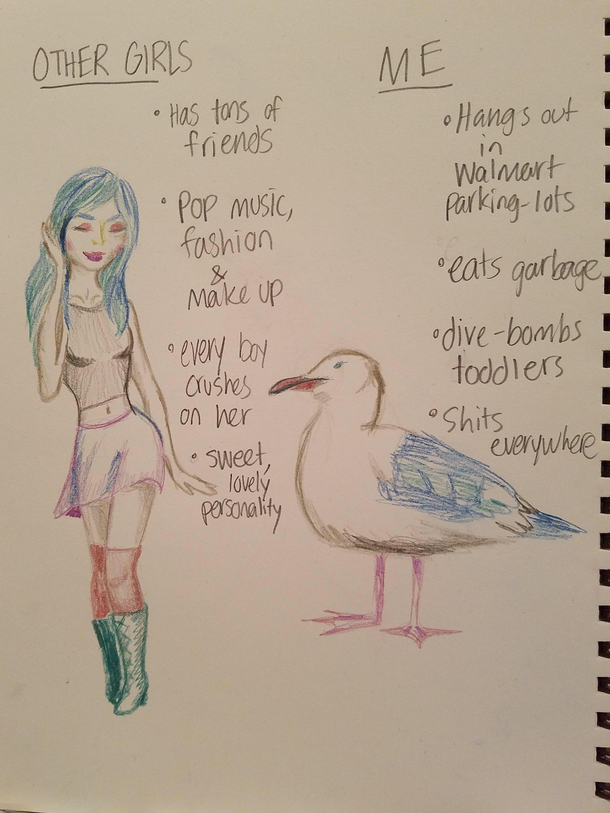 OTHER GIRLS
• Has tons of
friends
• Pop music,
fashion
&
make up
• every boy
crushes
on her
• sweet,
lovely
personality
ME
• Hangs out
in
Walmart
parking-lots
• eats garbage
• dive-bombs
toddlers
• Shits
everywhere